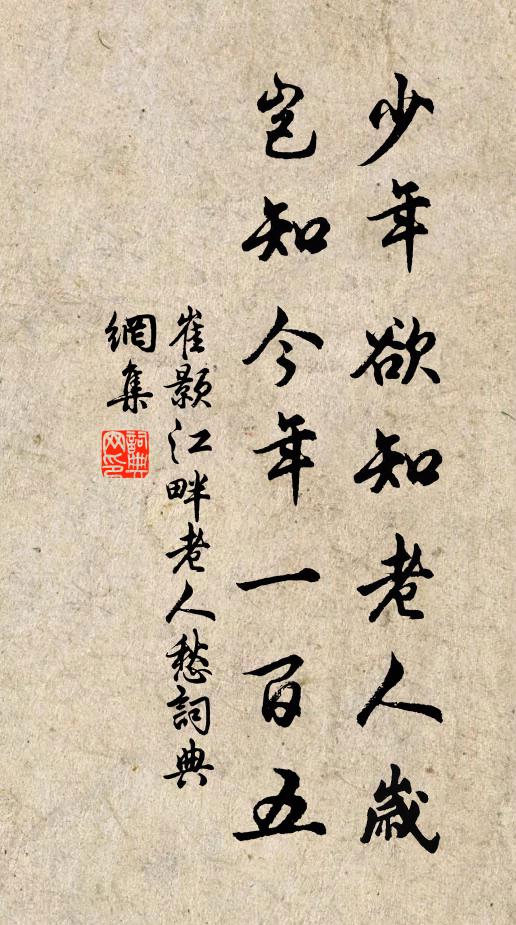 少年欲知老人歲
豈知今年一百五
崔顥江畔老人愁詞典
網集
詞典网印